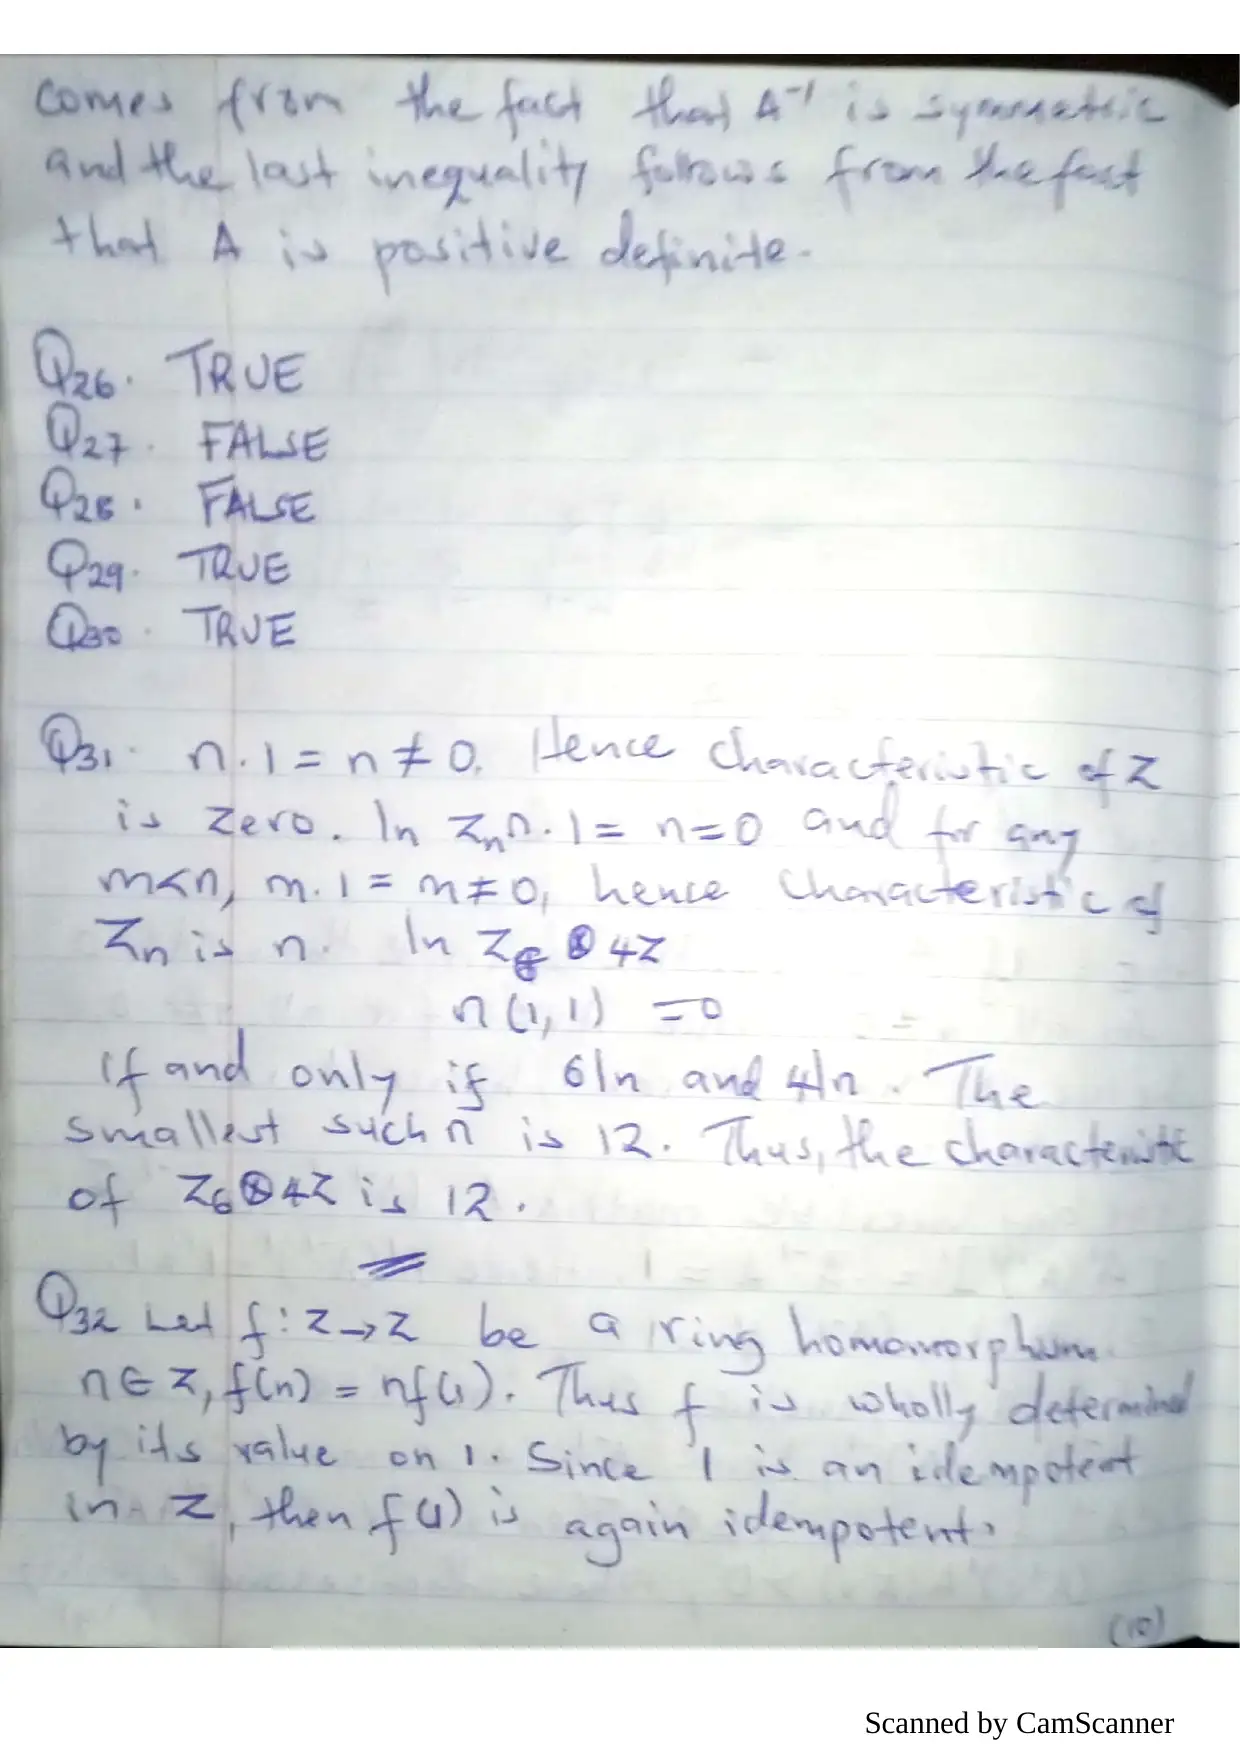 comes from the fact that A⁻¹ is symmetric
and the last inequality follows from the fact
that A is positive definite.
Q26. TRUE
Q27. FALSE
Q28. FALSE
Q29. TRUE
Q30. TRUE
Q31. n.1 = n ≠ 0. Hence characteristic of Z
is zero. In Zₙ n.1 = n=0 and for any
m<n, m.1 = m≠0, hence characteristic of
Zₙ is n. In Z₆ ⊗ 4Z
n(1,1) =0
if and only if 6|n and 4|n. The
smallest such n is 12. Thus, the characteristic
of Z₆⊗4Z is 12.
Q32 Let f: Z→Z be a ring homomorphism
n∈Z, f(n) = nf(1). Thus f is wholly determined
by its value on 1. Since 1 is an idempotent
in Z, then f(1) is again idempotent.
(10)
Scanned by CamScanner